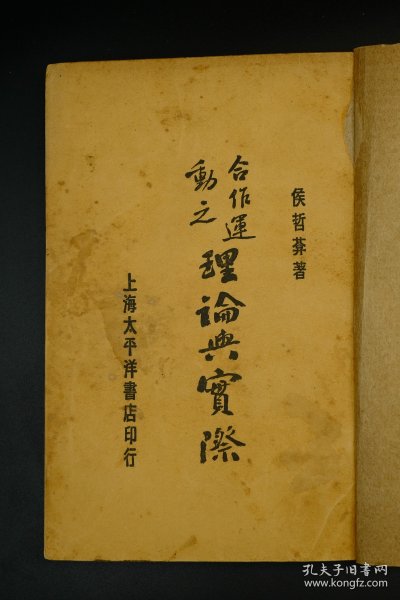 侯哲葊著
合作運
動之
理論與實際
上海太平洋書店印行
孔夫子旧书网
www.kongfz.com